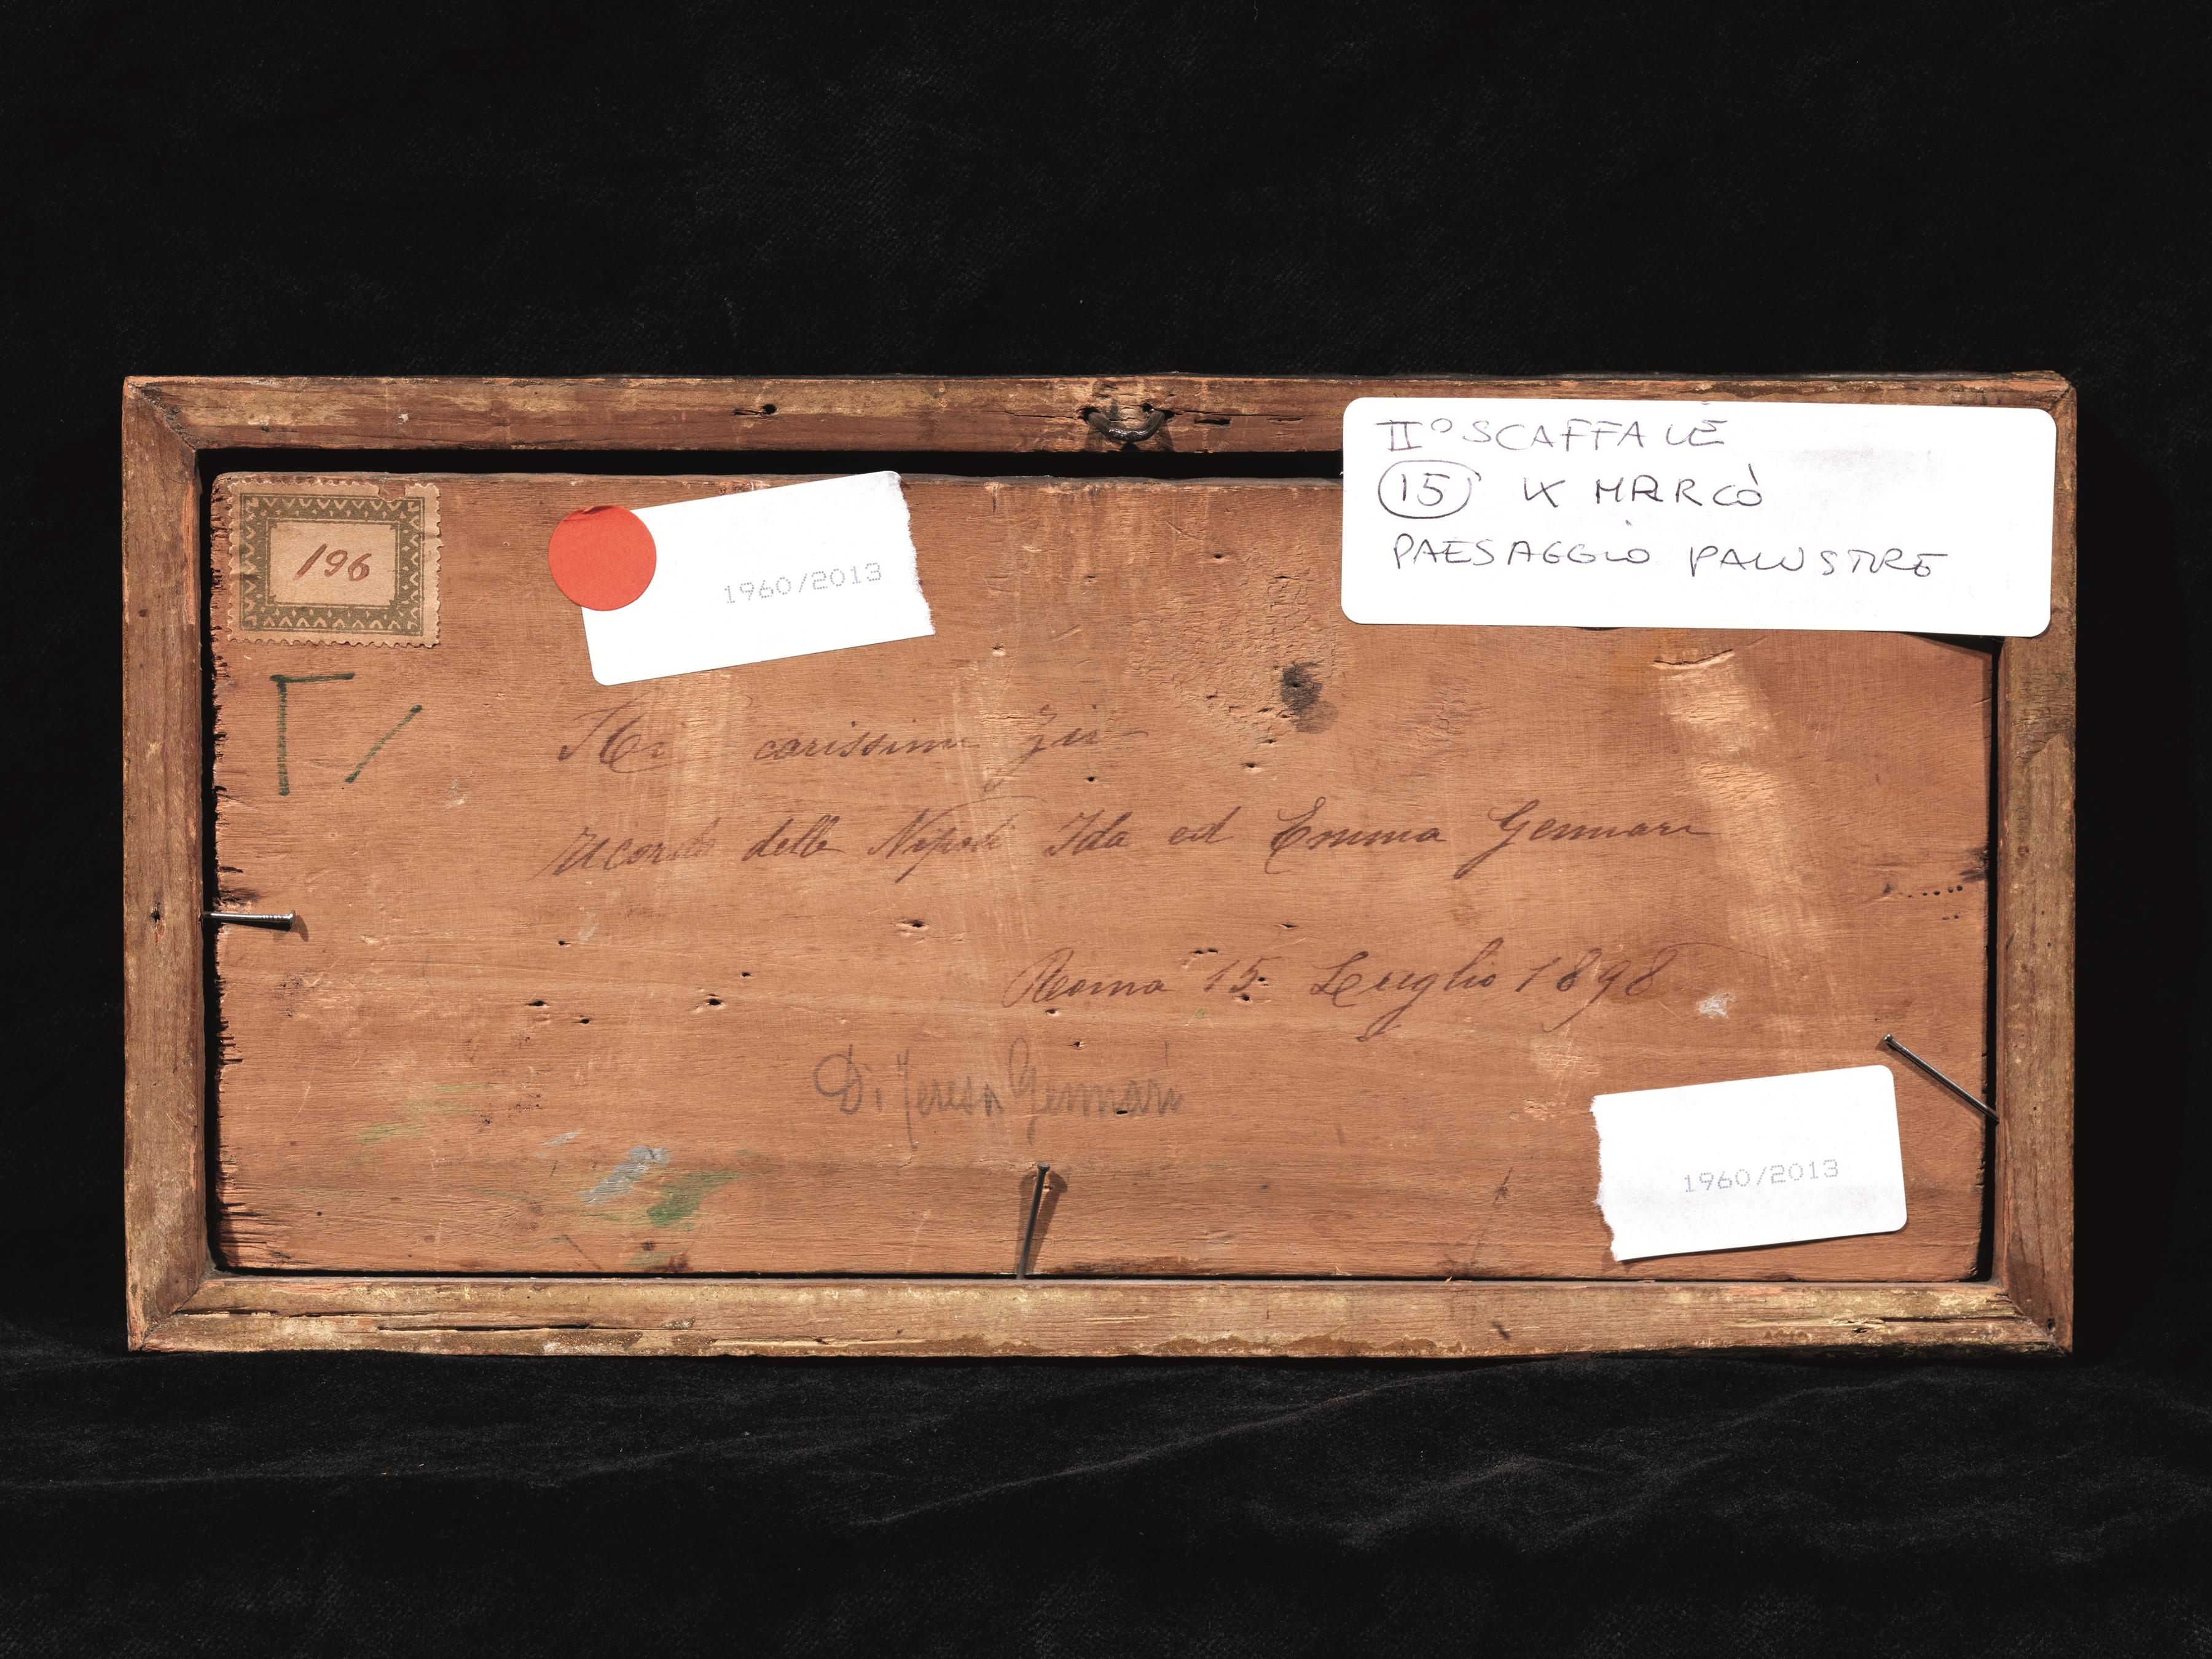 II° SCAFFALE
15 IX MARCÒ
PAESAGGIO PALUSTRE
196
1960/2013
carissimi Zii
ricordo delle Nipoti Ida ed Emma Gennari
Roma 15 Luglio 1898
Di Teresa Gennari
1960/2013